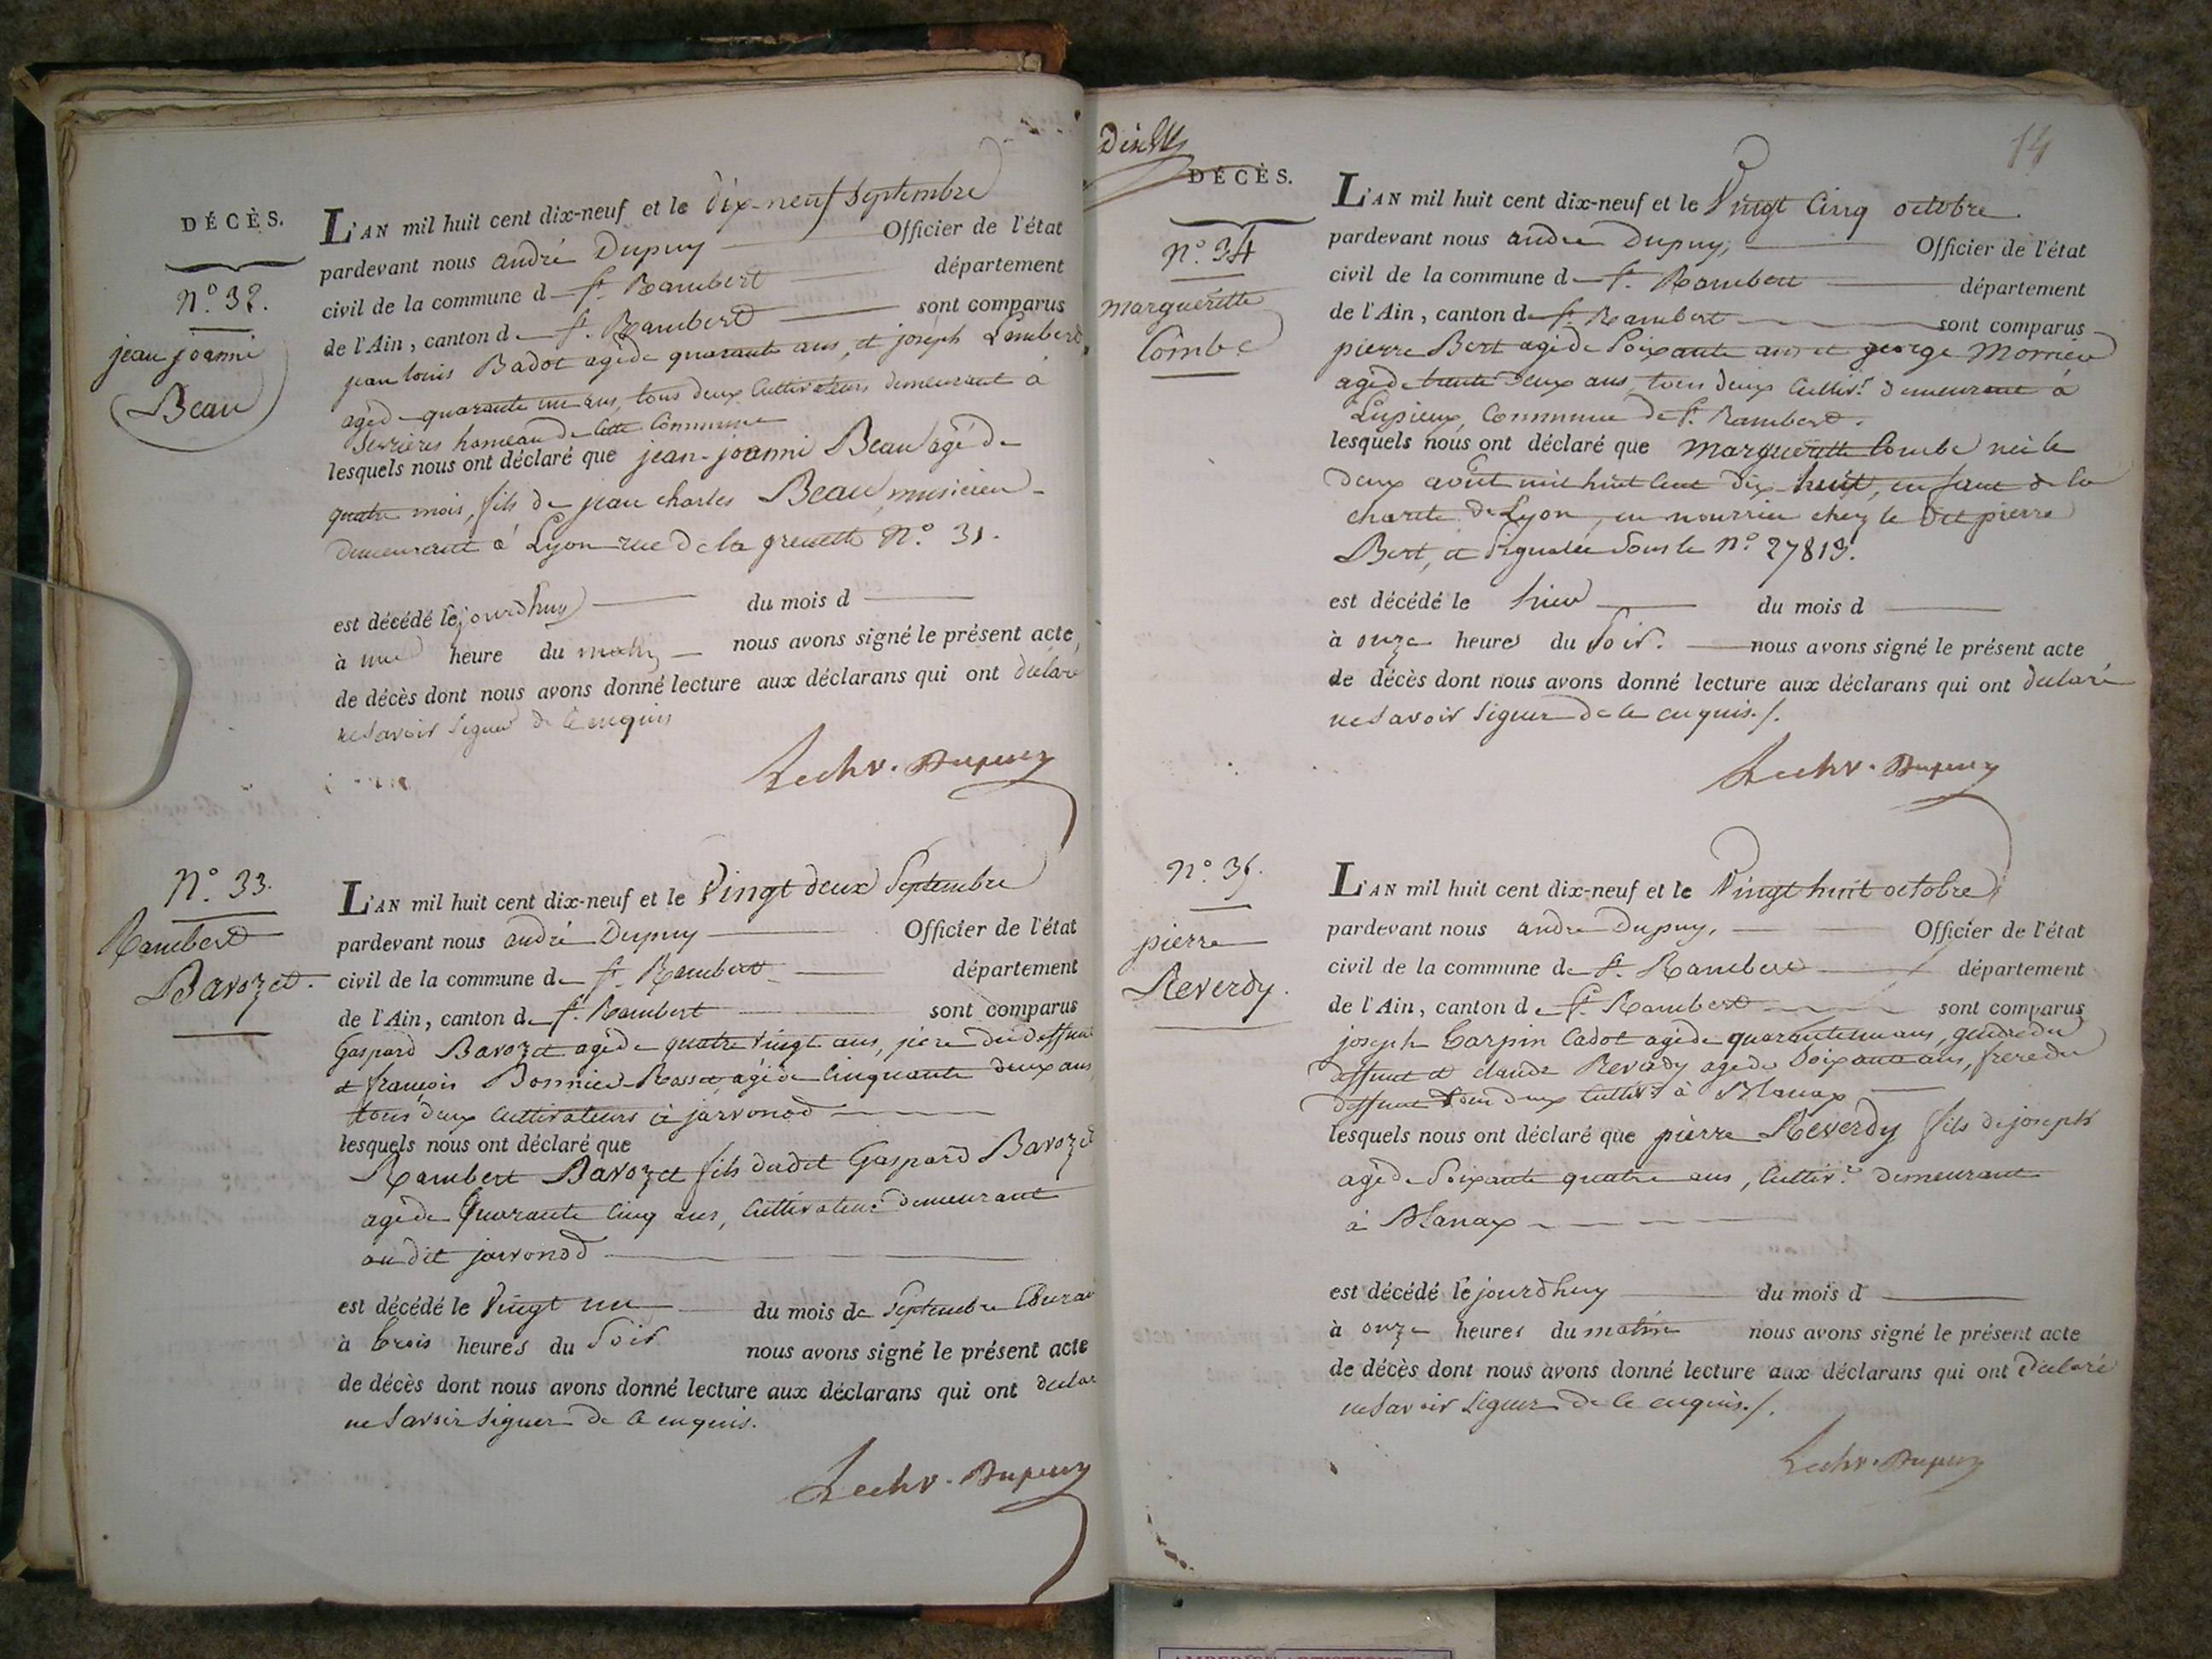 DÉCÈS.
N.º 32.
jean joanni
Beau
L'AN mil huit cent dix-neuf et le dix-neuf Septembre
pardevant nous andré Dupuy Officier de l'état
civil de la commune d St. Rambert département
de l'Ain, canton de St. Rambert sont comparus
jean louis Badot agé de quarante ans, et joseph Lombert
agé de quarante un ans, tous deux Cultivateurs demeurant à
Serrières hameau de Cette Commune
lesquels nous ont déclaré que jean-joanni Beau agé de
quatre mois, fils de jean charles Beau, musicien
demeurant à Lyon rue de la grenette N.º 31.
est décédé lejourdhuy du mois d
à une heure du matin nous avons signé le présent acte,
de décès dont nous avons donné lecture aux déclarans qui ont declaré
ne Savoir Signer de ce enquis
Lechv. Dupuy
N.º 33.
Rambert
Bavozet.
L'AN mil huit cent dix-neuf et le Vingt deux Septembre
pardevant nous andré Dupuy Officier de l'état
civil de la commune de St. Rambert département
de l'Ain, canton de St. Rambert sont comparus
Gaspard Bavozet agé de quatre Vingt ans, père du deffunt
et françois Bonnier-Rosset, agé de Cinquante deux ans,
tous deux Cultivateurs à jarvonod
lesquels nous ont déclaré que
Rambert Bavozet fils dudit Gaspard Bavozet
agé de Quarante Cinq ans, Cultivateur demeurant
au dit jarvonod
est décédé le Vingt un du mois de Septembre Courant
à trois heures du Soir nous avons signé le présent acte
de décès dont nous avons donné lecture aux déclarans qui ont declar
ne Savoir Signer de ce enquis.
Lechv. Dupuy
14
DÉCÈS.
N.º 34
margueritte
Combe
L'AN mil huit cent dix-neuf et le Vingt Cinq octobre
pardevant nous andré Dupuy, Officier de l'état
civil de la commune d St. Rambert département
de l'Ain, canton de St. Rambert sont comparus
pierre Bert agé de Soixante ans et george Morrier
agé de trente deux ans, tous deux Cultiv.r demeurant à
Lupieux, Commune de St. Rambert.
lesquels nous ont déclaré que marguerite Combe née le
deux août mil huit Cent dix-huit, enfant de la
charité de Lyon, en nourrice chez le dit pierre
Bert, et Signalée Sous le N.º 27819.
est décédé le hier du mois d
à onze heures du Soir. nous avons signé le présent acte
de décès dont nous avons donné lecture aux déclarans qui ont declaré
ne Savoir Signer de ce enquis./.
Lechv. Dupuy
N.º 35.
pierre
Reverdy.
L'AN mil huit cent dix-neuf et le Vingt huit octobre
pardevant nous andré Dupuy, Officier de l'état
civil de la commune de St. Rambert département
de l'Ain, canton de St. Rambert sont comparus
joseph Carpin Cadot agé de quarante un ans, gendre du
deffunt et claude Revedy agé de Soixante ans, frere du
deffunt tous deux Cultiv.rs à Blanax
lesquels nous ont déclaré que pierre Reverdy fils de joseph
agé de Soixante quatre ans, Cultiv.r demeurant
à Blanax
est décédé lejourdhuy du mois d
à onze heures du matin nous avons signé le présent acte
de décès dont nous avons donné lecture aux déclarans qui ont declaré
ne Savoir Signer de ce enquis./.
Lechv. Dupuy